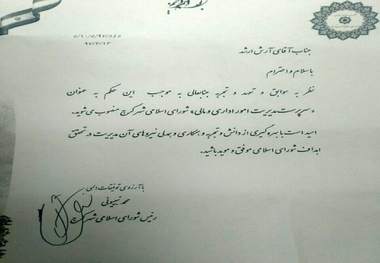 ۵/۱۰/۵/۹۲/۵۴۵
۹۲/۳/۱۳
جناب آقای آرش ارشد
باسلام و احترام
نظر به سوابق و تعهد و تجربه جنابعالی به موجب این حکم به عنوان
«سرپرست مدیریت امور اداری و مالی» شورای اسلامی شهر کرج منصوب می شوید.
امید است با بهره گیری از دانش و تجربه و همکاری و همدلی نیروهای آن مدیریت در تحقق
اهداف شورای اسلامی موفق و موید باشید.
با آرزوی توفیقات الهی
محمد نبیونی
رئیس شورای اسلامی شهر کرج